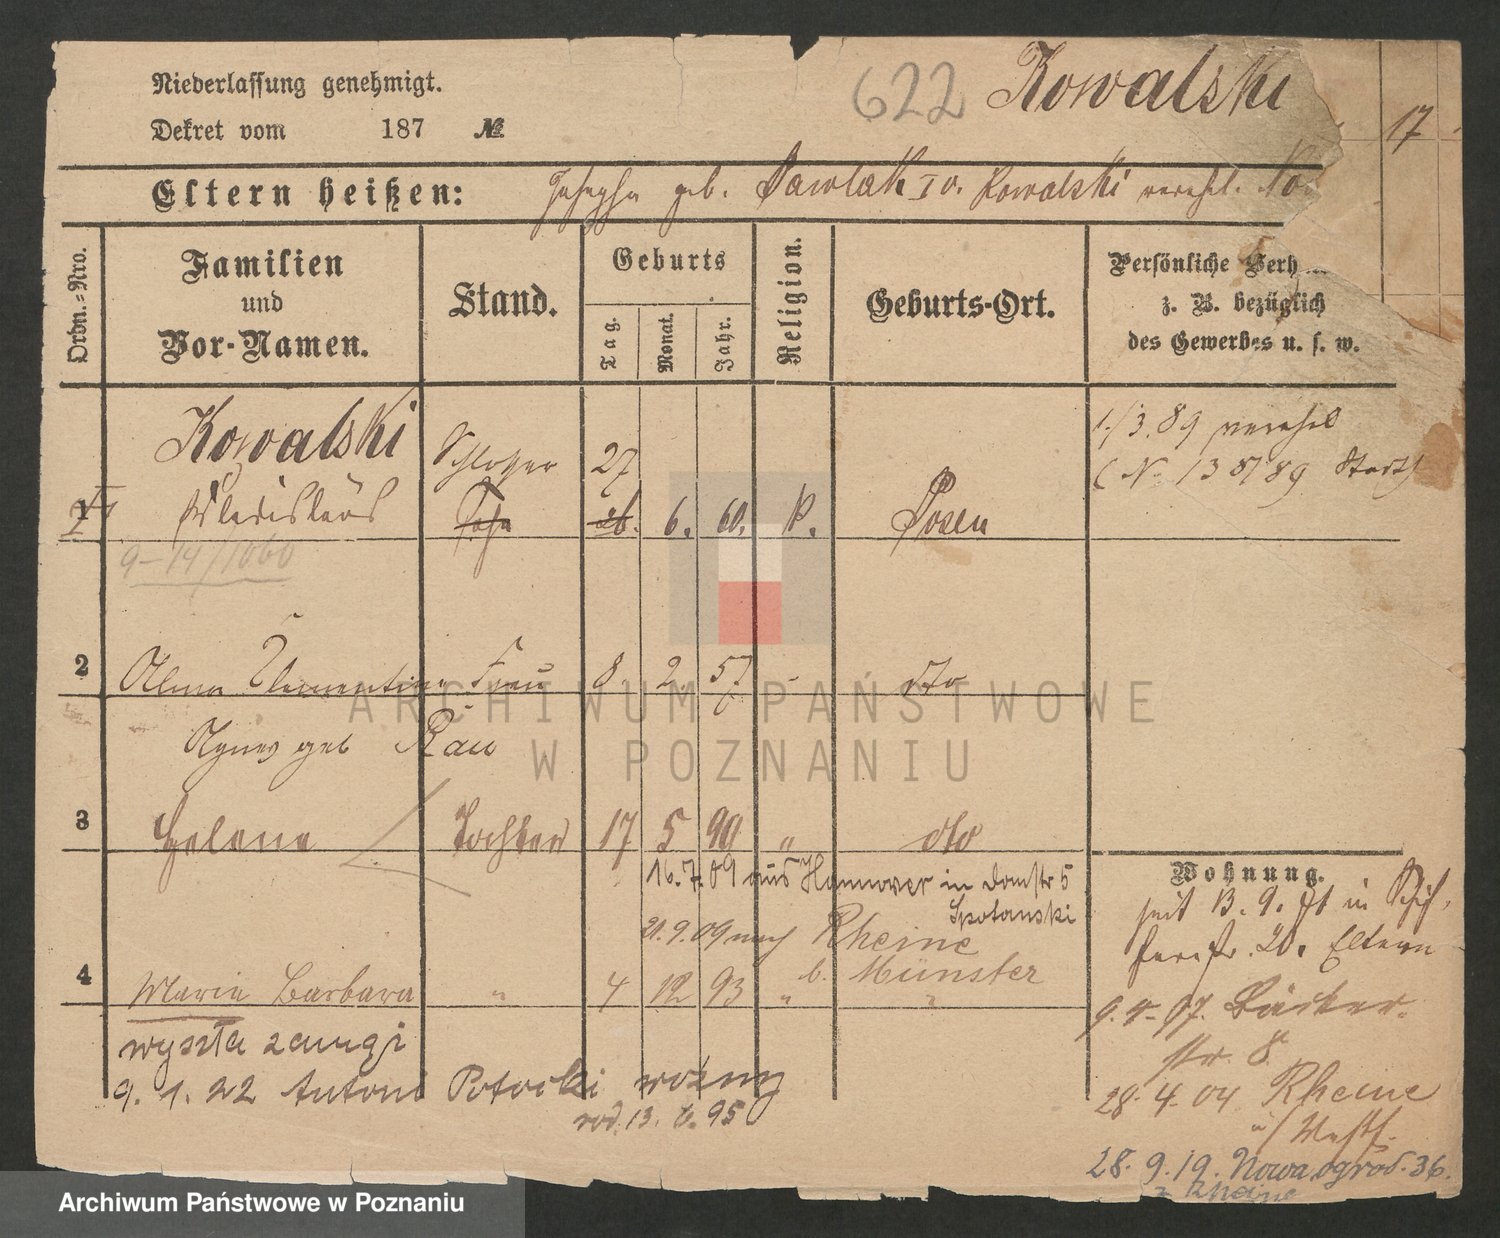 Niederlassung genehmigt.
622 Kowalski
Dekret vom 187 № 17
Eltern heißen: Josepha geb. Pawlak I v. Kowalski verehel.
Ordn.-Nro.
Familien und Vor-Namen.
Stand.
Geburts
Tag.
Monat.
Jahr.
Religion.
Geburts-Ort.
Persönliche Verh
z. B. bezüglich
des Gewerbes u. s. w.
1./3. 89 verehel
Kowalski Schlosser 27
1 Wladislaus 26. 6. 60. k. Posen
9-14/1060
2 Alma Clementine Frau 8 2 57 dto
Agnes geb Rau
3 Helene Tochter 17 5 90 " dto
16.7.09 aus Hannover in Domstr 5
Spotanski
21.9.09 nach Rheine
b. Münster
4 Maria Barbara " 4 12 93 " "
wyszła zamąż
9. 1. 22 Antoni Potocki woźny
rod. 13. 6. 95
Wohnung.
seit 13. 9. in
str. 20. Eltern
9. 4. 97. Bäcker-
str. 8.
28. 4. 04 Rheine
i/Westf.
28. 9. 19. Nowaogrod. 36.
z Rheine
ARCHIWUM PAŃSTWOWE
W POZNANIU
Archiwum Państwowe w Poznaniu